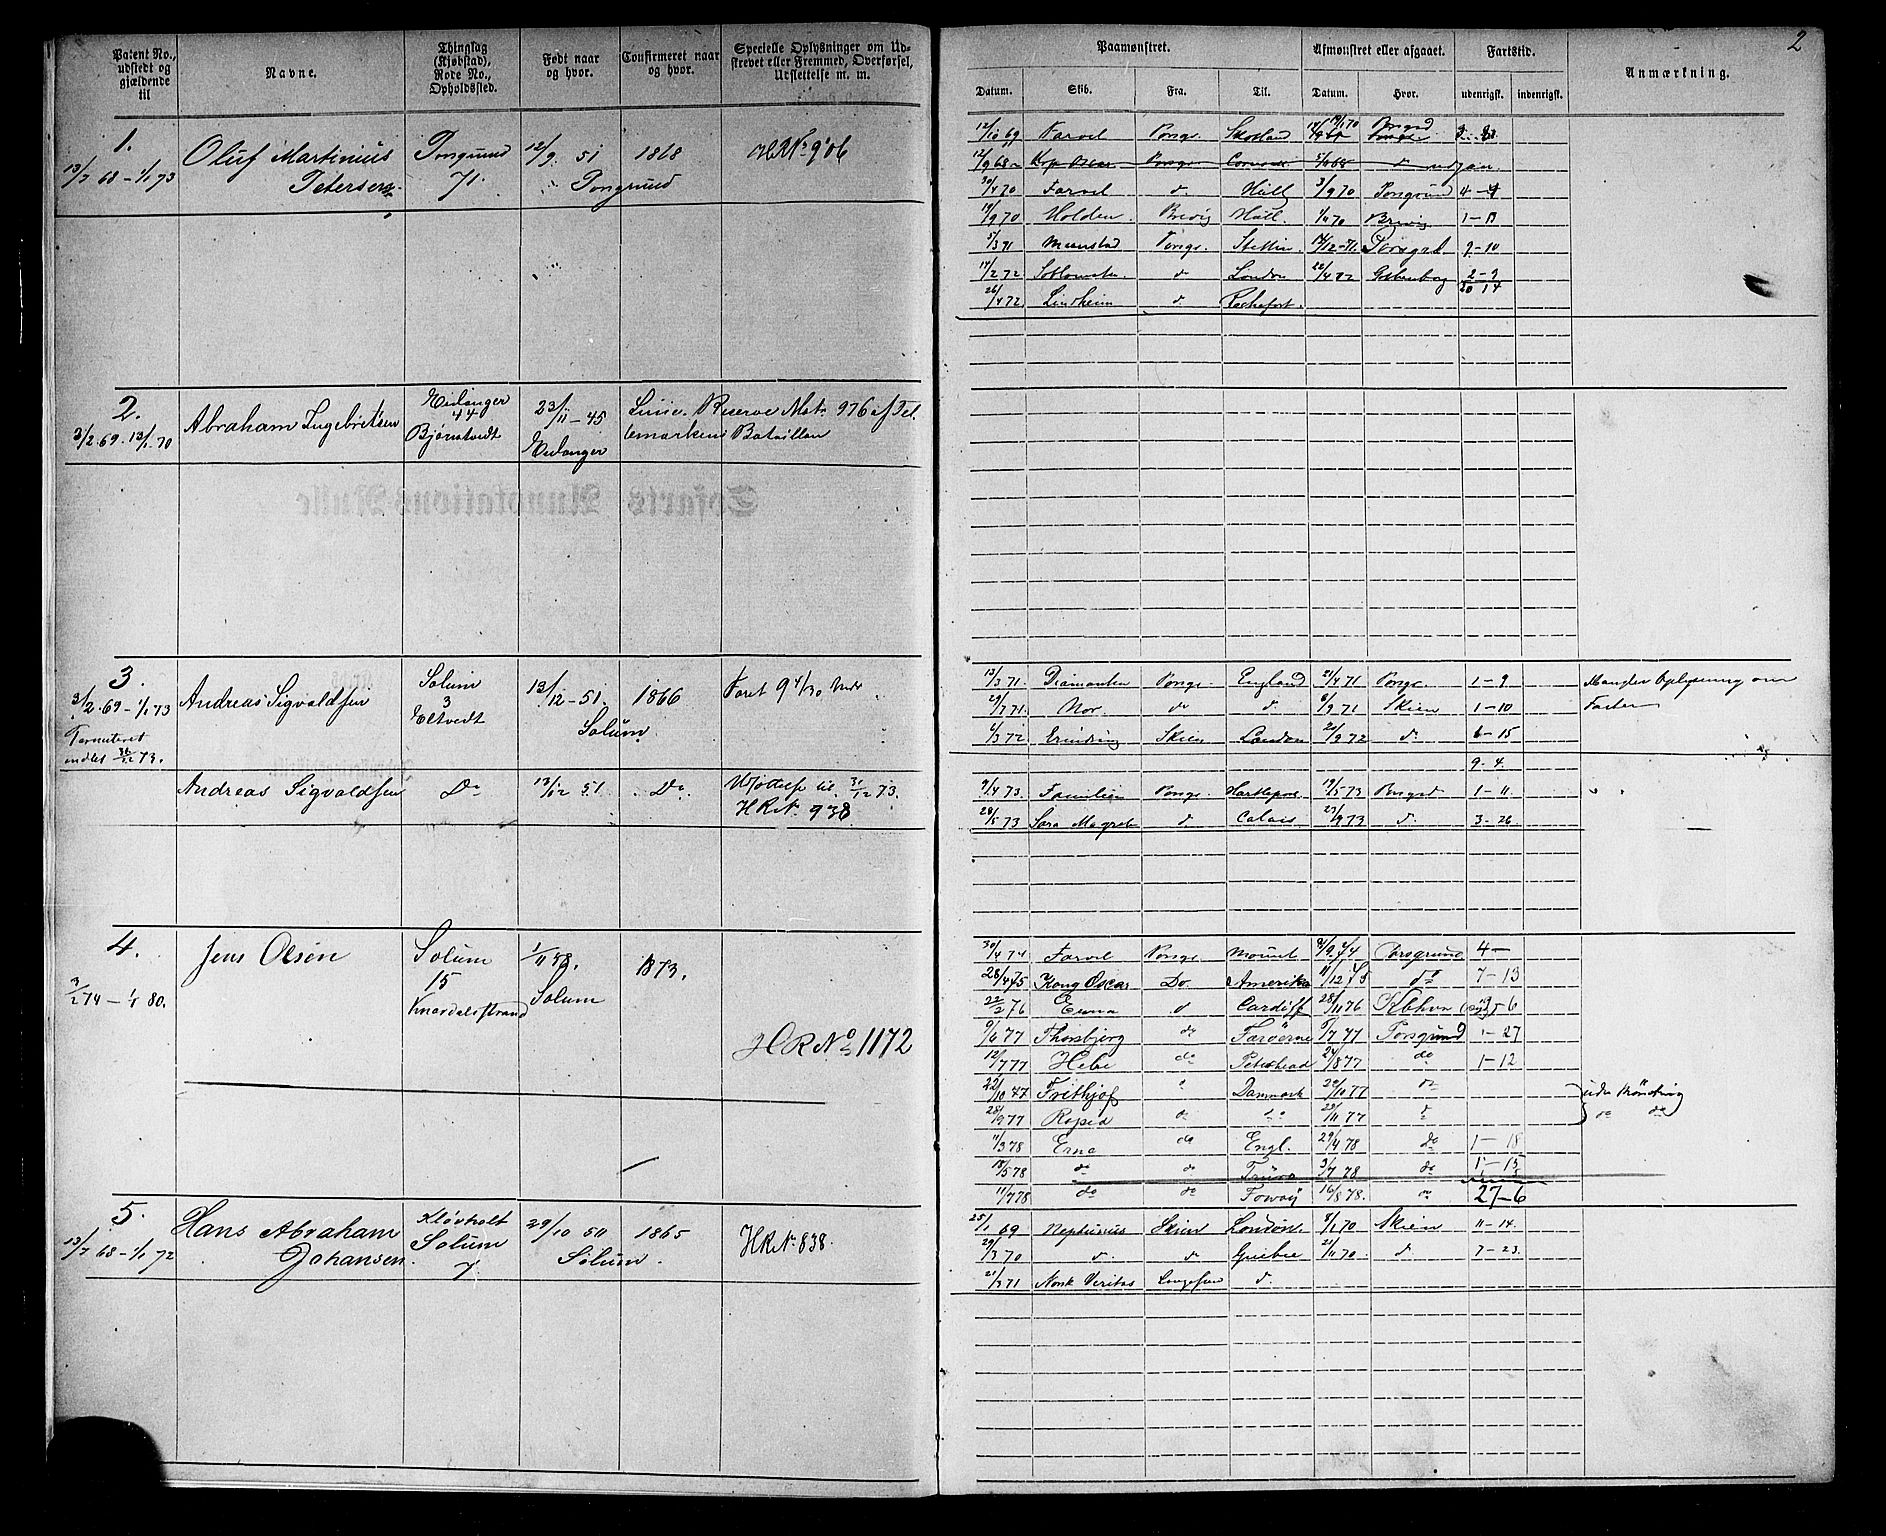 Patent No., udstedt og gjældende til
Navne.
Thinglag (Kjøbstad), Rode No., Opholdssted.
Født naar og hvor.
Confirmeret naar og hvor.
Specielle Oplysninger om Udskrevet eller Fremmed, Overførsel, Udslettelse m. m.
1.
13/7 68 - 1/1 73
Oluf Martinius
Petersen
Porsgrund
71
12/9 51
Porsgrund
1868
HRNo 906
2.
3/2 69 - 13/1 70
Abraham Ingebretsen
Eidanger
44
Bjørntvedt
23/11 - 45
Eidanger
Linie Reserve Mat. 976 af Tel
lemarkens Bataillon
Annotations Rulle
3.
3/2 69 - 1/1 73
indtil 31/12 73.
Andreas Sigvaldsen
Solum
3
Eltvedt
13/12 - 51.
Solum
1866
Faret 9 4/30 Mdr.
Andreas Sigvaldsen
Do
13/12 51
Do
til 31/12 73.
HRNo. 938
4.
3/2 74 - 1/1 80.
Jens Olsen
Solum
15
Knardalsstrand
1/11 58.
Solum
1873.
HRNo 1172
5.
13/7 68 - 1/1 72
Hans Abraham
Johansen.
Kløvholt
Solum
7
29/10 50
Solum.
1865
HRNo. 838.
2
Paamønstret.
Afmønstret eller afgaaet.
Fartstid.
Anmærkning.
Datum.
Skib.
Fra.
Til.
Datum.
Hvor.
udenrigst.
indenrigst.
12/10 69 Farvel Porsgr. Skotland
30/4 70 Farvel do Hull 3/9 70 Porsgrund 4 - 4
19/9 70 Holden. Brevig Hull. Brevig 1 - 13
5/3 71 Porsgr. Stettin 14/12 - 71. Porsgrd 9 - 10
17/2 72 do London 22/4 72 Gothenborg 2 - 9
20 14
26/4 72 Lindheim d. Rochefort.
13/3 71. Diamanten Porsgr. England 21/4 71 Porsgr. 1 - 9 Mangler Oplysning om
29/7 71. Nor. do d. 8/9 71 Skien 1 - 10
6/3 72 Erindring Skien London 21/9 72 d. 6 - 15
9 - 4.
9/4 73. Familien Porsgr. Hartlepool 19/5 73 Porsgrd 1 - 11
28/5 73 Sara Magrete d Calais 23/9 73 d. 3 - 26
30/4 74 Farvel Porsgr. 8/9 74 Porsgrund 4 -
28/4 75 Kong Oscar Do. Amerika 11/12 75 do 7 - 13
22/2 76 Erna d Cardiff 28/11 76 Kbhvn 9 - 6
9/6 77 Thorsbjerg do Farøerne 5/7 77 Porsgrund 1 - 27
12/7 77 Hebe do Peterhead 24/8 77 do 1 - 12
22/10 77 Frithjof " Danmark 29/10 77 do uden Mønstring
28/9 77 do 29/11 77 d do do
7/3 78 Erna do Engl. 29/4 78 do 1 - 18
18/5 78 do do 3/7 78 do 1 - 15
11/7 78 do do 16/8 78. do 27 - 6
25/1 69 Neptunus Skien London 8/1 70 Skien 11 - 14.
29/3 70 d. d Quebec 21/11 70 d 7 - 23.
21/3 71 Norsk Veritas Langesun d.